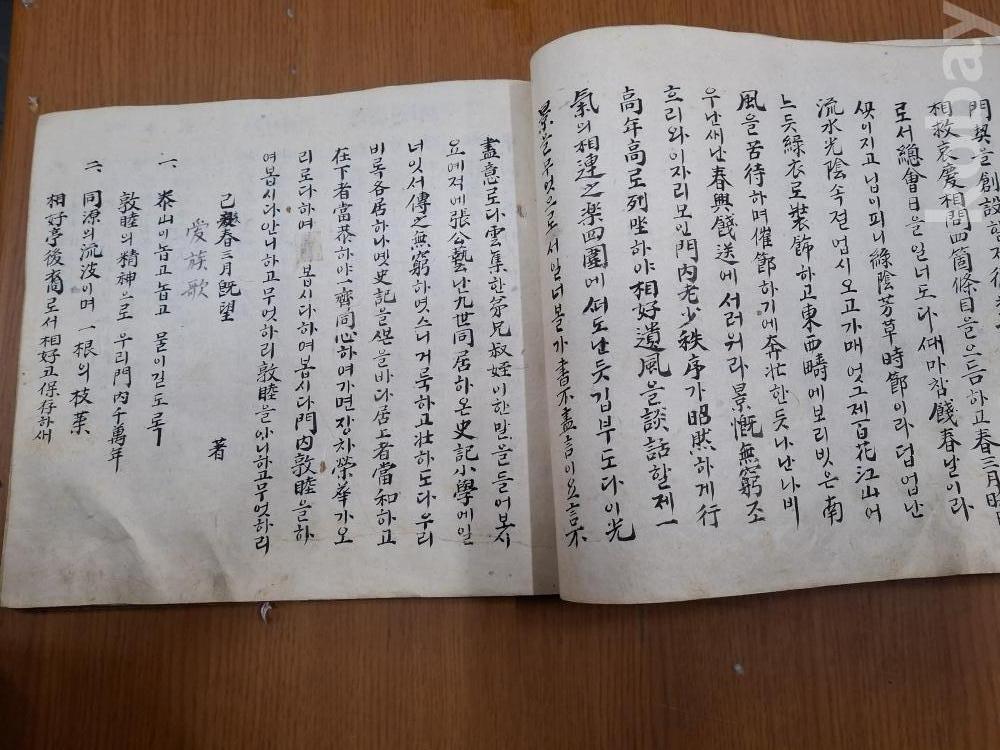 門契을創設한지後
相救哀慶相問四箇條目을으듬하고春三月晦日
로서總會日을일너도다때마참餞春날이라
꼿이지고닙이피니綠陰芳草時節이라덥업난
流水光陰속절업시오고가매엇그제百花江山어
느듯綠衣로裝飾하고東西疇에보리빗은南
風을苦待하며催節하기에奔壯한듯나난나비
우난새난春興餞送에서러워라景慨無窮조
흐리와이자리모인門內老少秩序가昭然하게行
高年高로列坐하야相好遺風을談話할제一
氣의相連之楽四圍에떠도난듯깁부도다이光
景을무엇으로서일너볼가書不盡言이요言不
盡意로다雲集한弟兄叔姪이한말을들어봅시
요예적에張公藝난九世同居하온史記小學에일
너잇서傳之無窮하엿스니거룩하고壯하도다우리
비록各居하나녯史記을뽄을바다居上者當和하고
在下者當恭하야一齊同心하여가면장차榮華가오
리로다하여 보십시다하여봅시다門內敦睦을하
여봅시다안니하고무엇하리敦睦을아니하고무엇하리
己 春三月旣望
著
愛族歌
一、泰山이놉고놉고 물이길도록
敦睦의精神으로 우리門內千萬年
二、同源의流波이며 一根의枝葉
相好亭後裔로서相好고保存하새
kobay